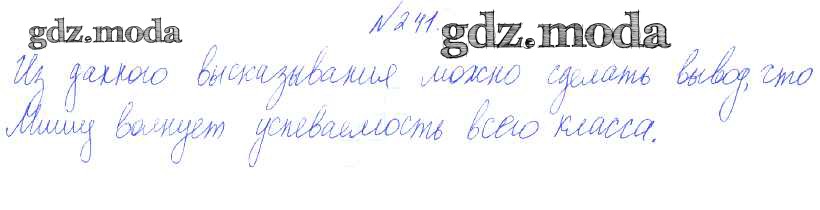 №241.
gdz.moda gdz.moda
Из данного высказывания можно сделать вывод, что
Мишу волнует успеваемость всего класса.